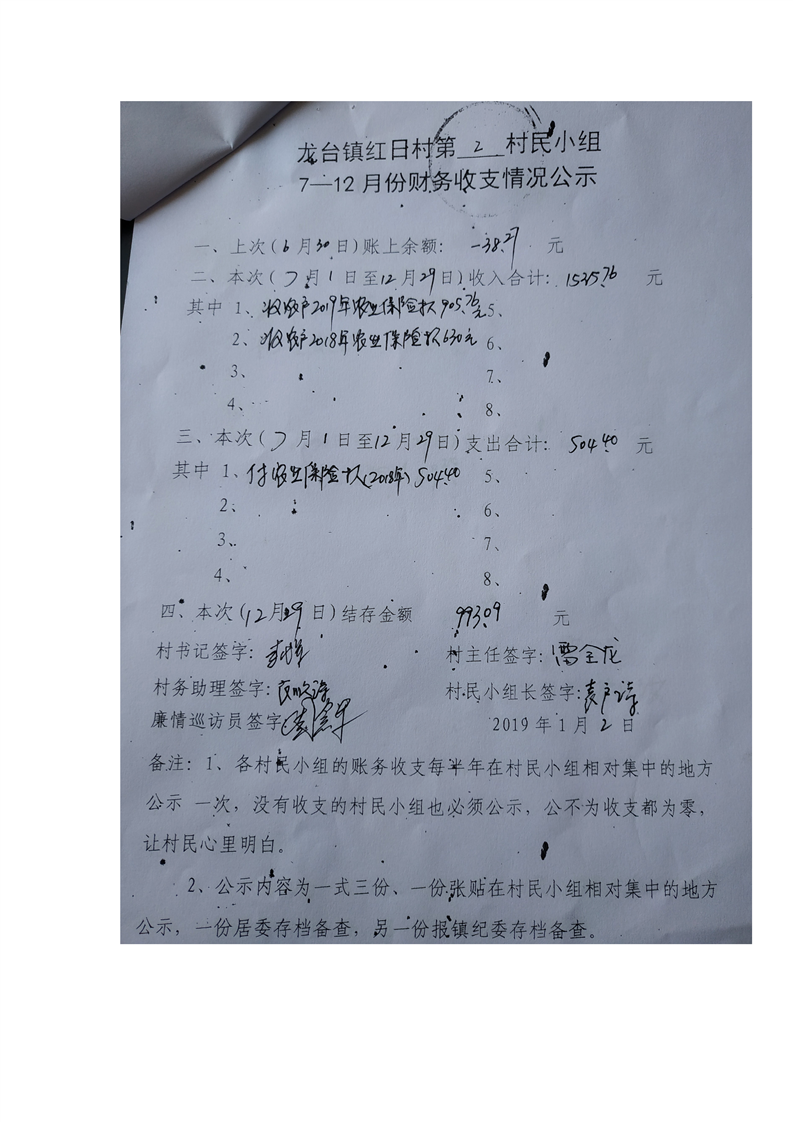 龙台镇红日村第 2 村民小组
7—12月份财务收支情况公示
一、上次(6月30日)账上余额: -38.27 元
二、本次(7月1日至12月29日)收入合计: 1535.76 元
其中 1、收农户2019年农业保险款905.76元 5、
2、收农户2018年农业保险款630元 6、
3、 7、
4、 8、
三、本次(7月1日至12月29日)支出合计: 504.40 元
其中 1、付农业保险款(2018年)504.40 5、
2、 6、
3、 7、
4、 8、
四、本次(12月29日)结存金额 993.09 元
村书记签字: 村主任签字:雷全龙
村务助理签字: 村民小组长签字:
廉情巡访员签字 2019年1月2日
备注:1、各村民小组的账务收支每半年在村民小组相对集中的地方
公示 一次,没有收支的村民小组也必须公示,公不为收支都为零,
让村民心里明白。
2、公示内容为一式三份、一份张贴在村民小组相对集中的地方
公示,一份居委存档备查,另一份报镇纪委存档备查。